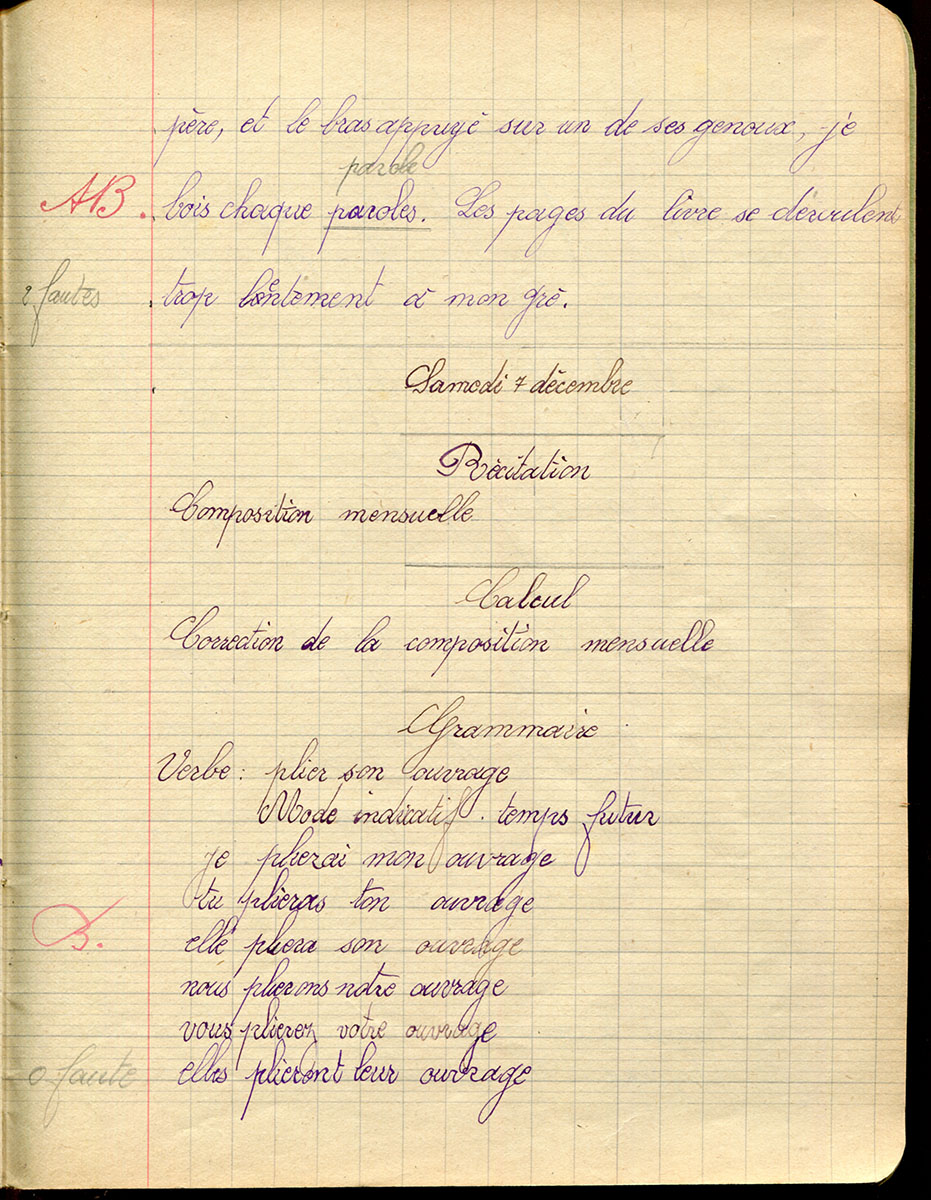 père, et le bras appuyé sur un de ses genoux, je
parole
AB. bois chaque paroles. Les pages du livre se déroulent
2 fautes trop lentement à mon gré.
Samedi 7 décembre
Récitation
Composition mensuelle
Calcul
Correction de la composition mensuelle
Grammaire
Verbe : plier son ouvrage
Mode indicatif. temps futur
je plierai mon ouvrage
tu plieras ton ouvrage
B. elle pliera son ouvrage
nous plierons notre ouvrage
vous plierez votre ouvrage
0 faute elles plieront leur ouvrage